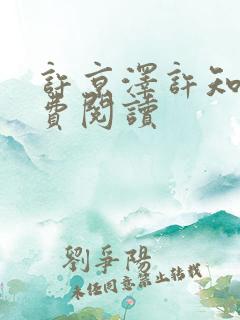 許京澤許知
費閱讀
劉爭陽
未經同意禁止轉載